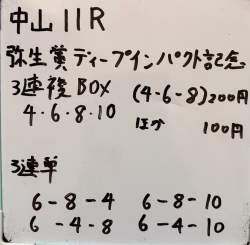 中山 11R
弥生賞ディープインパクト記念
3連複 BOX (4-6-8) 200円
4・6・8・10 ほか 100円
3連単
6-8-4 6-8-10
6-4-8 6-4-10